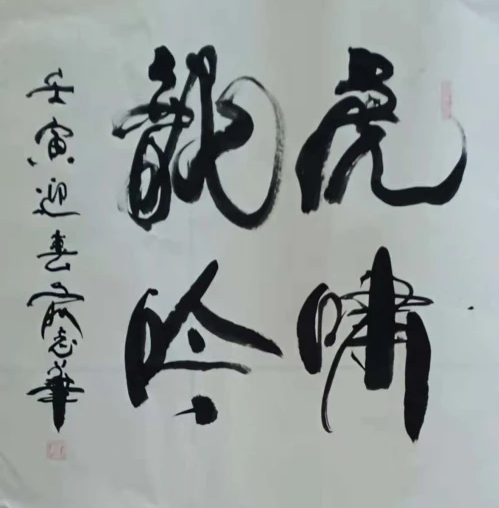 虎嘯
龍吟
壬寅迎春志華